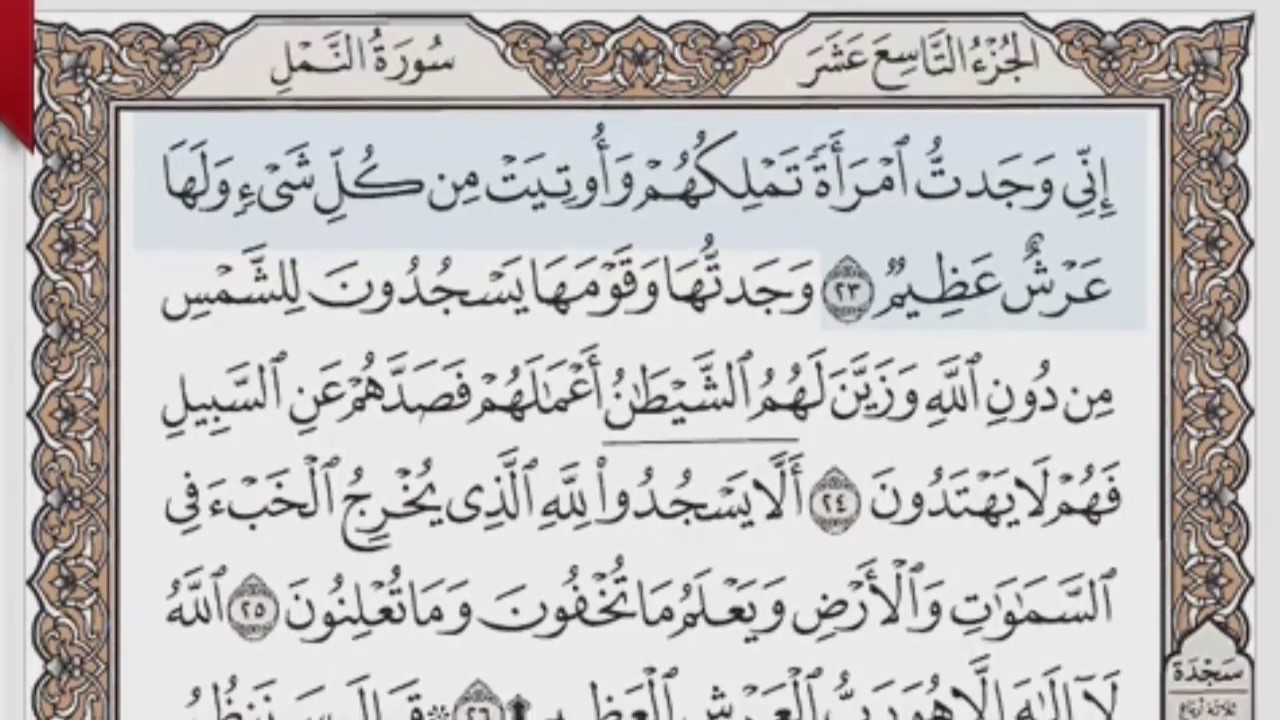 الجُزْءُ التَّاسِعَ عَشَرَ
سُورَةُ النَّمْلِ
إِنِّى وَجَدتُّ ٱمْرَأَةً تَمْلِكُهُمْ وَأُوتِيَتْ مِن كُلِّ شَىْءٍ وَلَهَا
عَرْشٌ عَظِيمٌ ٢٣ وَجَدتُّهَا وَقَوْمَهَا يَسْجُدُونَ لِلشَّمْسِ
مِن دُونِ ٱللَّهِ وَزَيَّنَ لَهُمُ ٱلشَّيْطَٰنُ أَعْمَٰلَهُمْ فَصَدَّهُمْ عَنِ ٱلسَّبِيلِ
فَهُمْ لَا يَهْتَدُونَ ٢٤ أَلَّا يَسْجُدُوا۟ لِلَّهِ ٱلَّذِى يُخْرِجُ ٱلْخَبْءَ فِى
ٱلسَّمَٰوَٰتِ وَٱلْأَرْضِ وَيَعْلَمُ مَا تُخْفُونَ وَمَا تُعْلِنُونَ ٢٥ ٱللَّهُ
لَآ إِلَٰهَ إِلَّا هُوَ رَبُّ ٱلْعَرْشِ ٱلْعَظِيمِ ۩ ٢٦ ۞ قَالَ سَنَنظُرُ
سَجْدَة